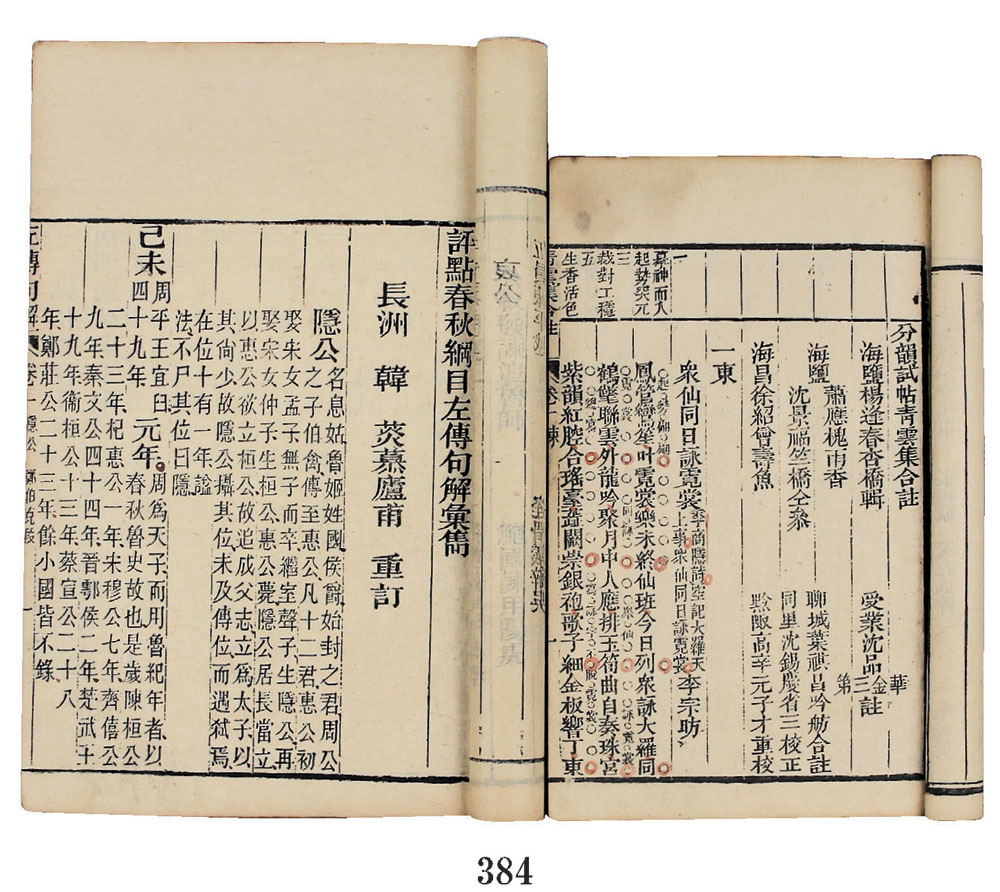 分韻試帖青雲集合註
海鹽楊逢春杏橋輯
蕭應槐雨香
海鹽
沈景福竺橋仝參
海昌徐紹曾壽魚
受業沈品金註
華
第三
聊城葉祺昌吟舫合註
同里沈錫慶省三校正
黟縣高辛元子才重校
一東
衆仙同日詠霓裳
上事衆仙同日詠霓裳
李宗昉
鳳管鸞笙叶霓裳樂未終仙班今日列衆詠大羅同
鶴氅聯雲外龍吟聚月中人應排玉筍曲自奏珠宮
紫韻紅腔合瑤臺蕋闕崇銀砲歌子細金板響丁東
一
起勢突元
三
裁對工穩
五
生香活色
青雲集合註
卷一 東
一
評點春秋綱目左傳句解彙雋
長洲 韓 菼慕廬甫 重訂
隱公
名息姑魯姬姓國侯爵始封之君周公
之子伯禽傳至惠公凡十二君惠公初
娶宋女孟子無子而卒繼室聲子生隱公再
娶宋女仲子生桓公惠公薨隱公居長當立
以惠公欲立桓公故追成父志立爲太子以
其尚少故隱公攝其位未及傳位而遇弒焉
在位十有一年謚
法不尸其位曰隱
己未
周平王宜臼
四十九年
元年
周爲天子而用魯紀年者以
春秋魯史故也是歲陳桓公
二十三年杞惠公一年宋穆公七年齊僖公
九年秦文公四十四年晉鄂侯二年楚武王
十九年衛桓公十三年蔡宣公二十八
年鄭莊公二十三年餘小國皆不錄
左傳句解
卷一
隱公
一
384